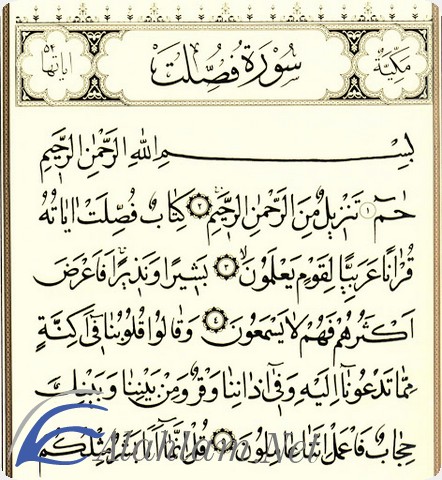 مكيّة سُورَةُ فُصِّلَتْ اياتها ٥٤
بِسْمِ اللّٰهِ الرَّحْمٰنِ الرَّحِيمِ
حٰمٓ ١ تَنْزِيلٌ مِنَ الرَّحْمٰنِ الرَّحِيمِ ٢ كِتَابٌ فُصِّلَتْ اٰيَاتُهُ
قُرْاٰنًا عَرَبِيًّا لِقَوْمٍ يَعْلَمُونَ ٣ بَشِيرًا وَنَذِيرًا فَاَعْرَضَ
اَكْثَرُهُمْ فَهُمْ لَا يَسْمَعُونَ ٤ وَقَالُوا قُلُوبُنَا فِٓى اَكِنَّةٍ
مِمَّا تَدْعُونَٓا اِلَيْهِ وَفِٓى اٰذَانِنَا وَقْرٌ وَمِنْ بَيْنِنَا وَبَيْنِكَ
حِجَابٌ فَاعْمَلْ اِنَّنَا عَامِلُونَ ٥ قُلْ اِنَّمَٓا اَنَا۬ بَشَرٌ مِثْلُكُمْ
Alahlam.Net